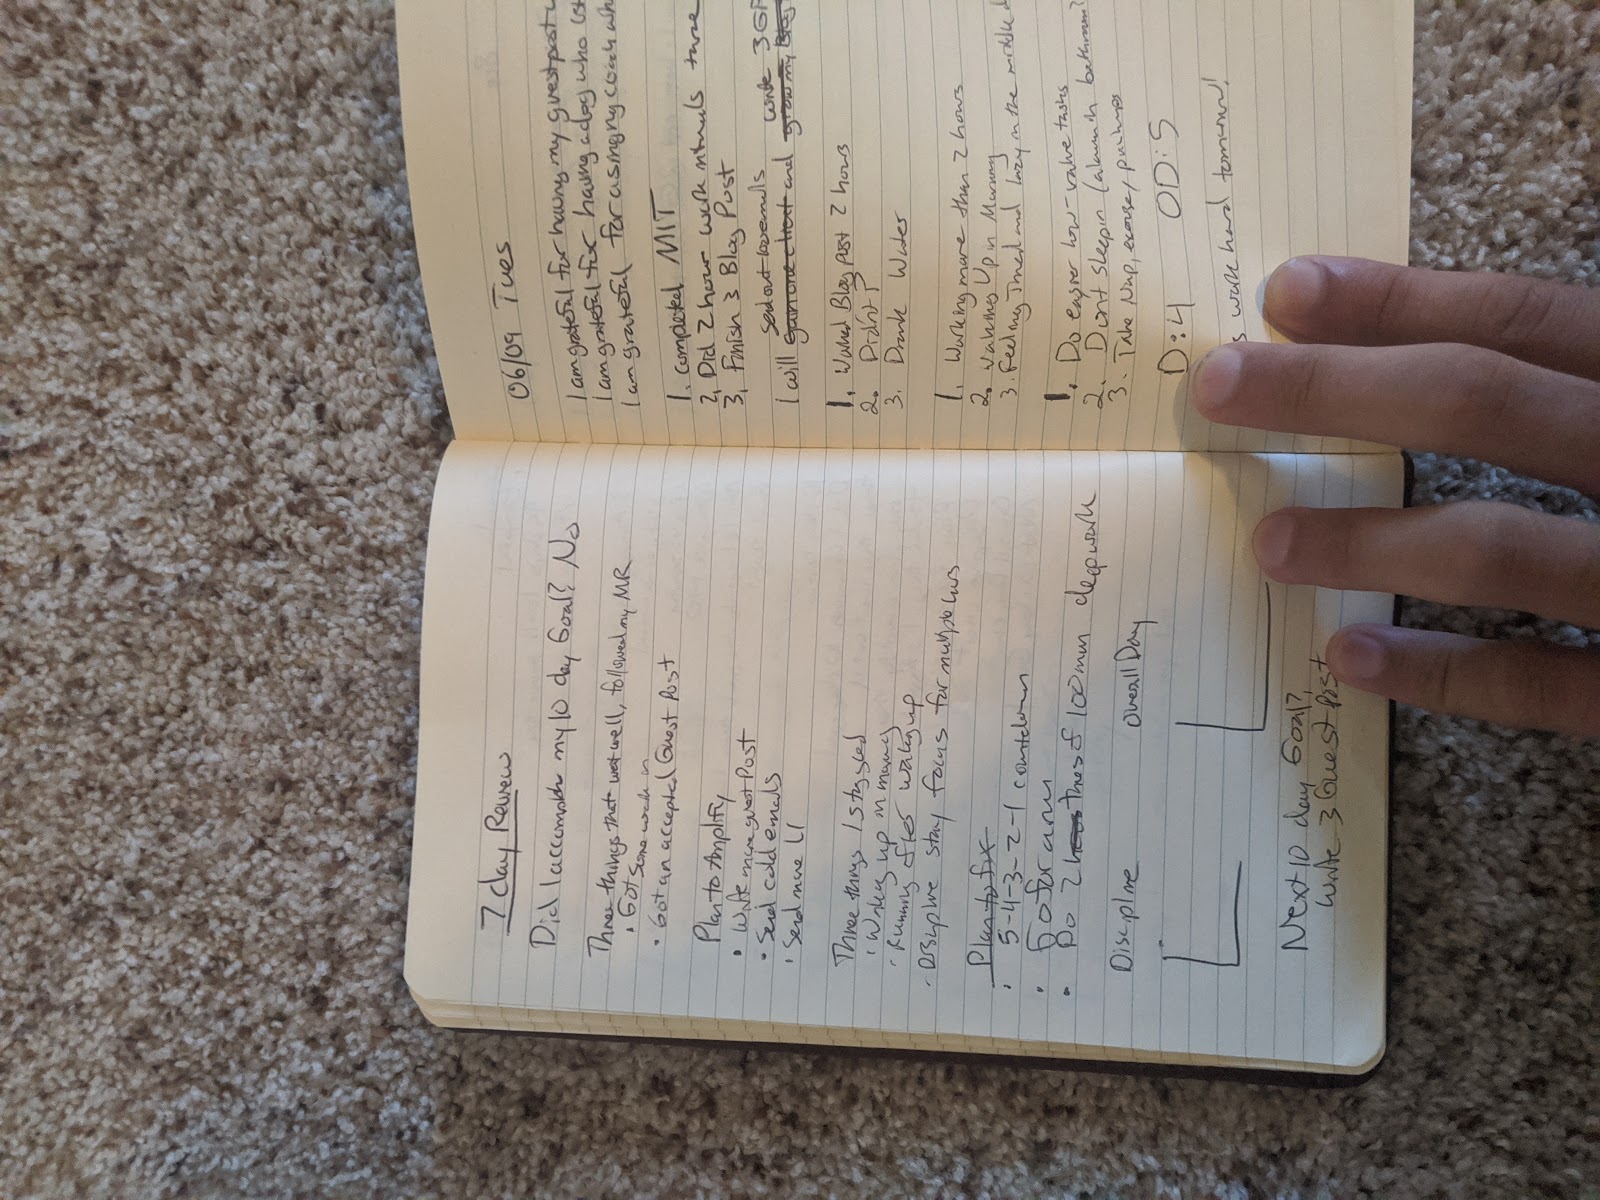 7 day Review
Did I accomplish my 10 day Goal? No
Three things that went well, followed my MR
· Got some work in
· Got an accepted Guest Post
Plan to Amplify
· Write more guest Post
· Send cold emails
· Send more LI
Three things I struggled
· Waking up in morning
· Running after waking up
· Discipline stay focus for multiple hrs
Plan to fix
· 5-4-3-2-1 countdown
· Go for a run
· Do 2 times of 100 min deep work
Discipline overall Day
Next 10 day Goal?
Write 3 Guest Post
06/09 Tues
I am grateful for having my guest post
I am grateful for having a dog who
I am grateful for
1. Completed MIT
2. Did 2 hour work intervals
3. Finish 3 Blog Post
send out emails write 3 GP
I will game on chart and grow my Blog
1. Wrote Blog Post 2 hours
2. Didn't
3. Drank Water
1. Working more than 2 hours
2. Waking Up in Morning
3. Feeling Tired and lazy in the middle
1. Do easier low-value tasks
2. Don't sleep in (alarm in bathroom?
3. Take Nap, exercise/
D:4 OD:5
work hard tomorrow!